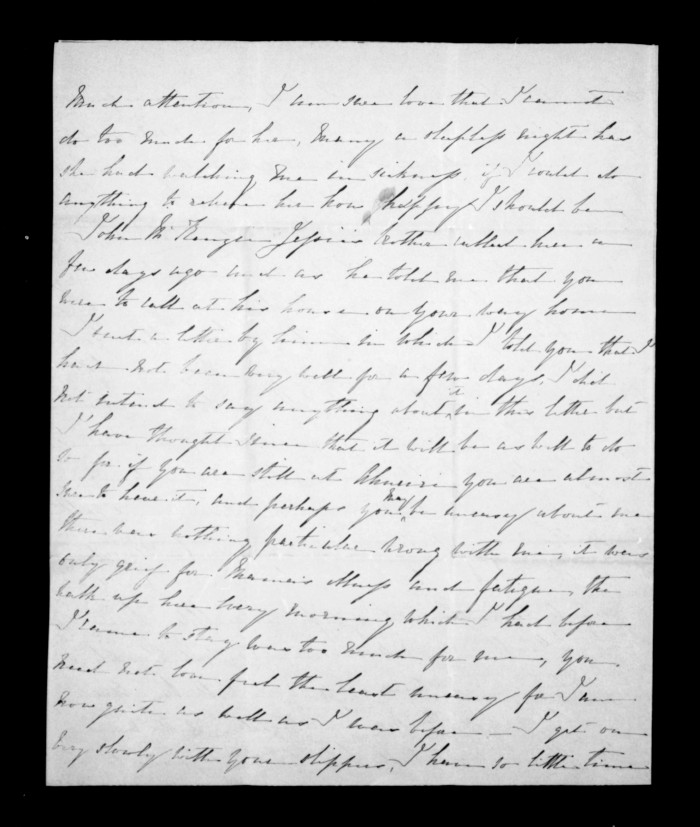 much attention, I am sure love that I cannot
do too much for her, many a sleepless night has
she had watching me in sickness, if I could do
anything to relieve her how happy I should be
John McKenzie Jessie's brother called here a
few days ago and as he told me that you
were to call at his house on your way home
I sent a letter by him in which I told you that I
have not been very well for a few days. I did
not intend to say anything about it in this letter but
I have thought since that it will be as well to do
so for if you are still at Ahuriri you are almost
sure to hear it, and perhaps you may be uneasy about me
there was nothing particular wrong with me, it was
only grief for Mama's illness and fatigue, the
walk up here every morning which I had before
I came to stay was too much for me, you
need not love feel the least uneasy for I am
now quite as well as I was before — I get on
very slowly with your slippers, I have so little time